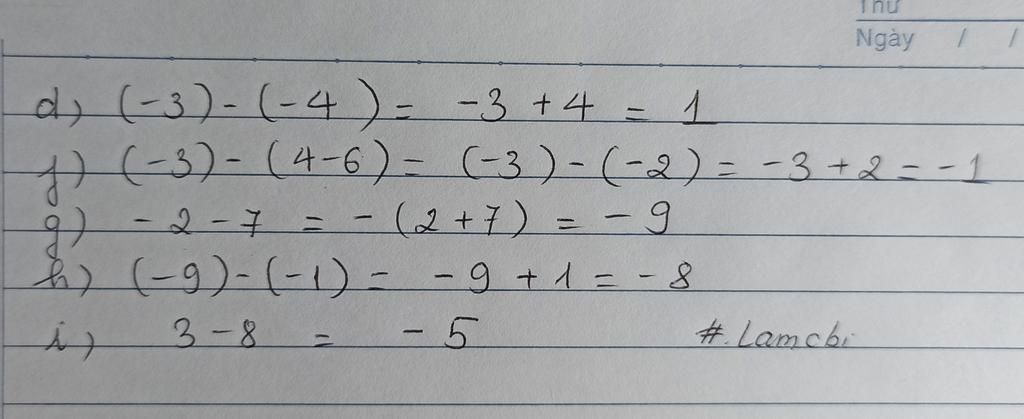 Thứ
Ngày / /
d) (-3) - (-4) = -3 + 4 = 1
f) (-3) - (4-6) = (-3) - (-2) = -3 + 2 = -1
g) -2 - 7 = -(2+7) = -9
h) (-9) - (-1) = -9 + 1 = -8
i) 3 - 8 = -5
#.Lamcbi